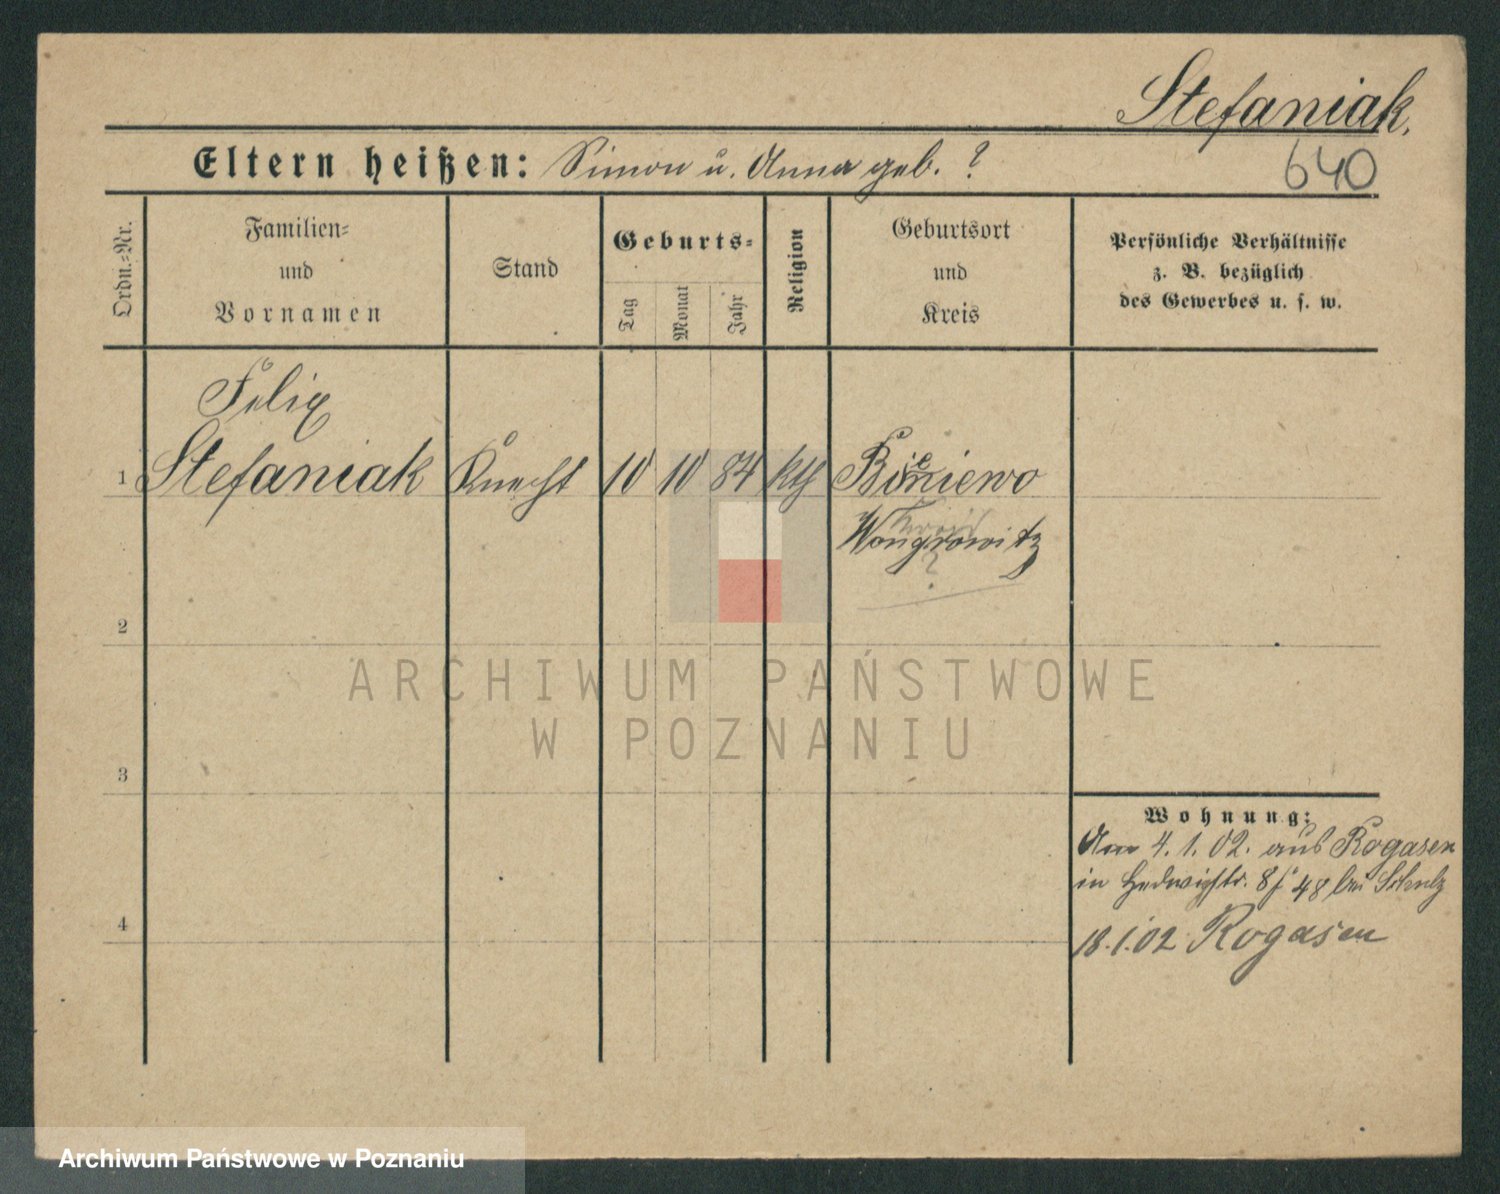 Stefaniak.
640
Eltern heißen: Simon u. Anna geb. ?
Ordn.-Nr.
Familien-
und
Vornamen
Stand
Geburts-
Tag
Monat
Jahr
Religion
Geburtsort
und
Kreis
Persönliche Verhältnisse
z. B. bezüglich
des Gewerbes u. s. w.
Felix
1 Stefaniak Knecht 10 10 84 kth
Wongrowitz
?
2
3
4
Wohnung:
Am 4. 1. 02. aus Rogasen
in Hedwigstr. 8 48 bei Schulz
18.1.02 Rogasen
ARCHIWUM PAŃSTWOWE
W POZNANIU
Archiwum Państwowe w Poznaniu